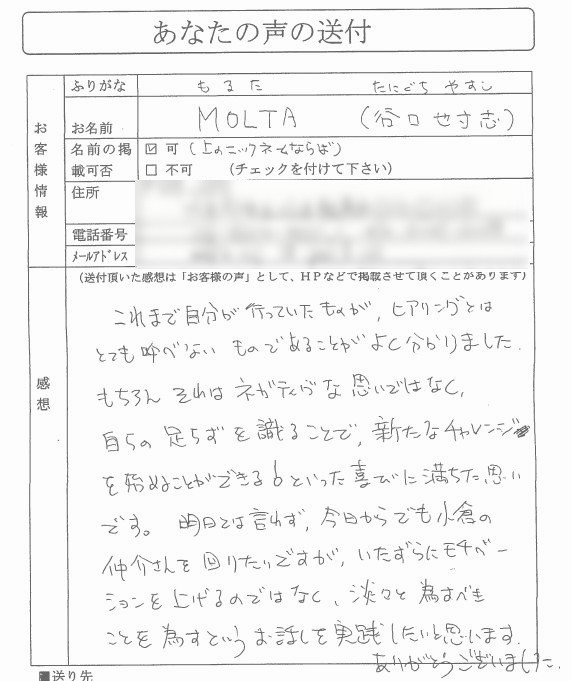 あなたの声の送付
ふりがな もるた たにぐち やすし
お客様情報
お名前 MOLTA (谷口 せ寸志)
名前の掲載可否 ☑ 可 (上のニックネームならば)
□ 不可 (チェックを付けて下さい)
住所
電話番号
メールアドレス
(送付頂いた感想は「お客様の声」として、HPなどで掲載させて頂くことがあります)
感想
これまで自分が行っていたものが、ヒアリングとは
とても呼べないものであることがよく分かりました.
もちろん それは ネガティヴな思いではなく、
自らの足らずを識ることで、新たなチャレンジ
を始めることができる!といった喜びに満ちた思い
です。 明日とは言わず、今日からでも小倉の
仲介さんを回りたいですが、いたずらにモチベー
ションを上げるのではなく、淡々と為すべき
ことを為すという お話しを実践したいと思います.
ありがとうございました.
■送り先